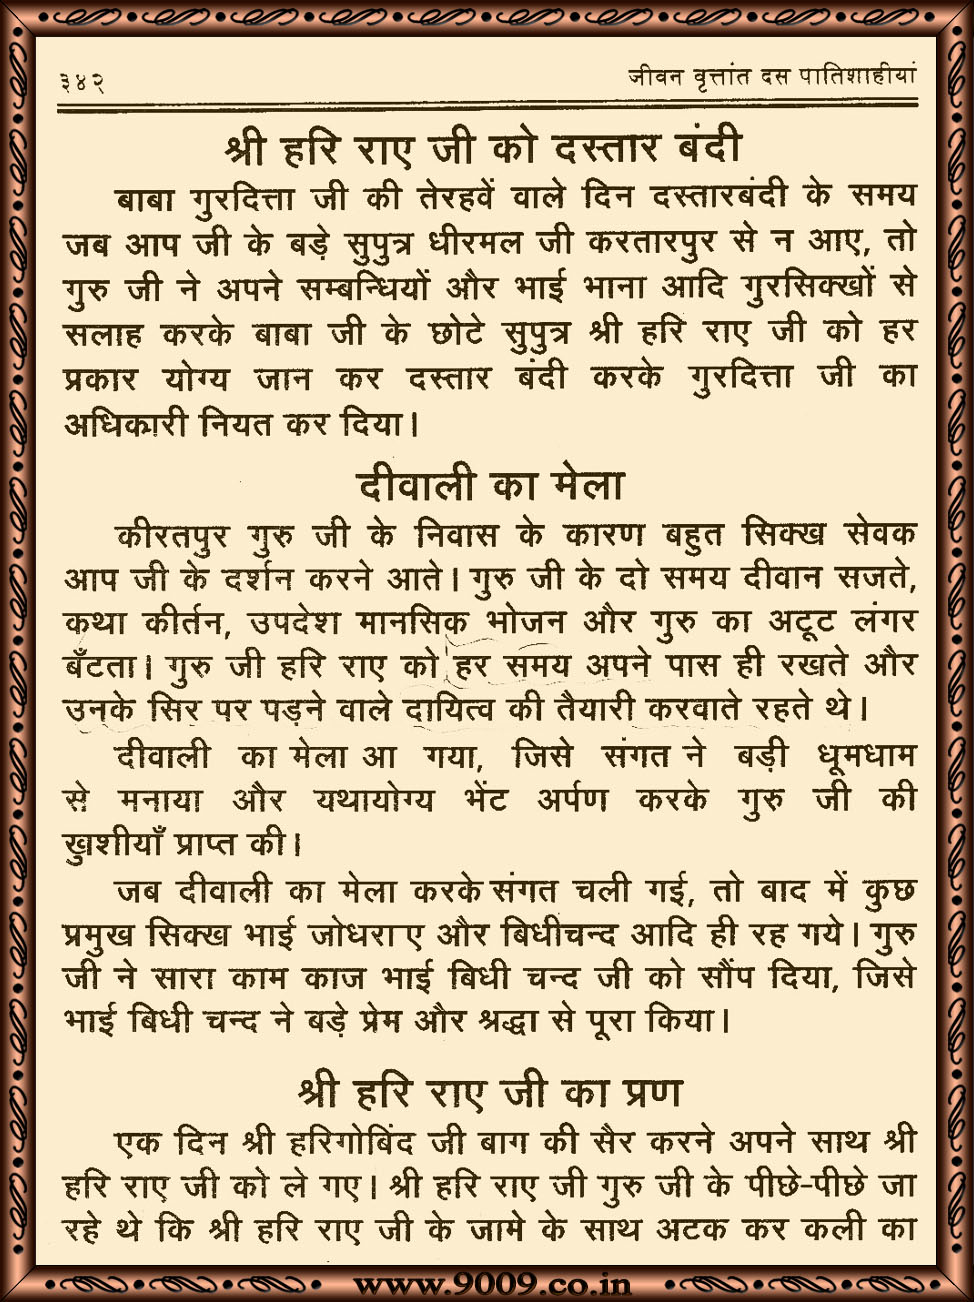 ३४२ जीवन वृत्तांत दस पातिशाहीयां
श्री हरि राए जी को दस्तार बंदी
बाबा गुरदित्ता जी की तेरहवें वाले दिन दस्तारबंदी के समय
जब आप जी के बड़े सुपुत्र धीरमल जी करतारपुर से न आए, तो
गुरु जी ने अपने सम्बन्धियों और भाई भाना आदि गुरसिक्खों से
सलाह करके बाबा जी के छोटे सुपुत्र श्री हरि राए जी को हर
प्रकार योग्य जान कर दस्तार बंदी करके गुरदित्ता जी का
अधिकारी नियत कर दिया।
दीवाली का मेला
कीरतपुर गुरु जी के निवास के कारण बहुत सिक्ख सेवक
आप जी के दर्शन करने आते। गुरु जी के दो समय दीवान सजते,
कथा कीर्तन, उपदेश मानसिक भोजन और गुरु का अटूट लंगर
बँटता। गुरु जी हरि राए को हर समय अपने पास ही रखते और
उनके सिर पर पड़ने वाले दायित्व की तैयारी करवाते रहते थे।
दीवाली का मेला आ गया, जिसे संगत ने बड़ी धूमधाम
से मनाया और यथायोग्य भेंट अर्पण करके गुरु जी की
खुशीयाँ प्राप्त की।
जब दीवाली का मेला करके संगत चली गई, तो बाद में कुछ
प्रमुख सिक्ख भाई जोधराए और बिधीचन्द आदि ही रह गये। गुरु
जी ने सारा काम काज भाई बिधी चन्द जी को सौंप दिया, जिसे
भाई बिधी चन्द ने बड़े प्रेम और श्रद्धा से पूरा किया।
श्री हरि राए जी का प्रण
एक दिन श्री हरिगोबिंद जी बाग की सैर करने अपने साथ श्री
हरि राए जी को ले गए। श्री हरि राए जी गुरु जी के पीछे-पीछे जा
रहे थे कि श्री हरि राए जी के जामे के साथ अटक कर कली का
www.9009.co.in